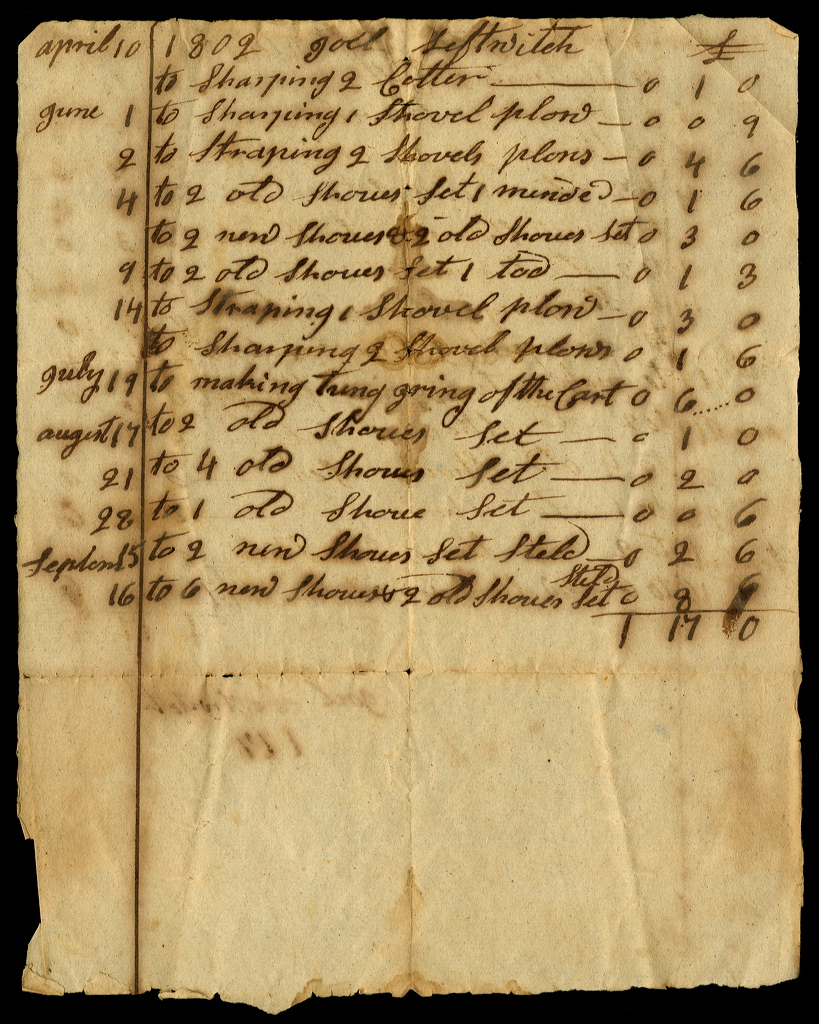 april 10 1802 Joel Leftwitch £
to Sharping 2 Cotters 0 1 0
June 1 to Sharping 1 Shovel plow 0 0 9
2 to Straping 2 Shovels plows 0 4 6
4 to 2 old Shoues Set 1 mended 0 1 6
to 2 new Shoues & 2 old Shoues Set 0 3 0
9 to 2 old Shoues Set 1 tod 0 1 3
14 to Straping 1 Shovel plow 0 3 0
to Sharping 2 Shovel plows 0 1 6
July 19 to making tung gring of the Cart 0 6 0
august 17 to 2 old Shoues Set 0 1 0
21 to 4 old Shoues Set 0 2 0
28 to 1 old Shoue Set 0 0 6
Septem 15 to 2 new Shoues Set Steld 0 2 6
16 to 6 new Shoues & 2 old Shoues Steld Set 0 8 6
1 17 0